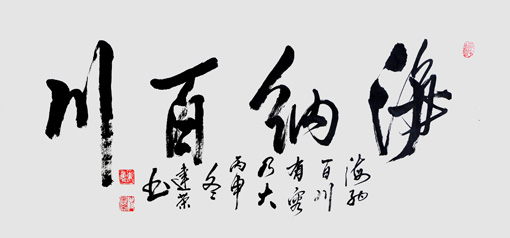 海纳百川
海纳
百川
有容
乃大
丙申
冬
建荣
书